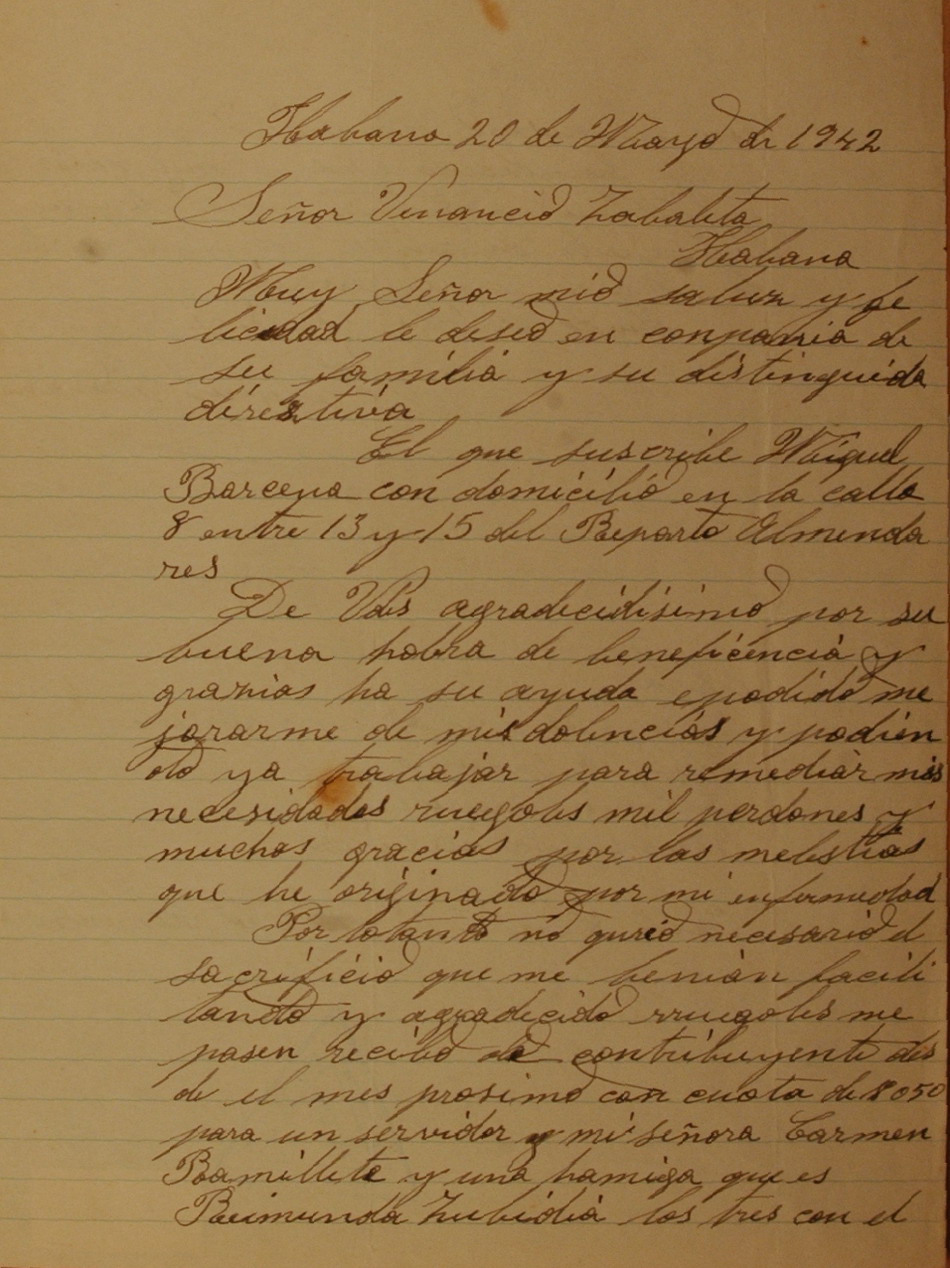 Habana 20 de Mayo de 1942
Señor Venancio Zabaleta
Habana
Muy Señor mio saluz y fe
licidad le deseo en conpania de
su familia y su distinguida
direztiva
El que suscribe Miguel
Barcena con domicilio en la calle
8 entre 13 y 15 del Reparto Almenda
res
De Vdes agradecidisimo por su
buena hobra de beneficencia y
grazias ha su ayuda epodido me
jorarme de mis dolencias y podien
do ya trabajar para remediar mis
necesidades ruegoles mil perdones y
muchas gracias por las molestias
que he originado por mi enfermedad
Por lotanto no qureo necesario el
sacrificio que me benian facili
tando y agradecido rruegoles me
pasen recibo de contribuyente des
de el mes prosimo con cuota de $ 050
para un servidor y mi señora Carmen
Ramillete y una hamiga que es
Reimunda Zubidia los tres con el